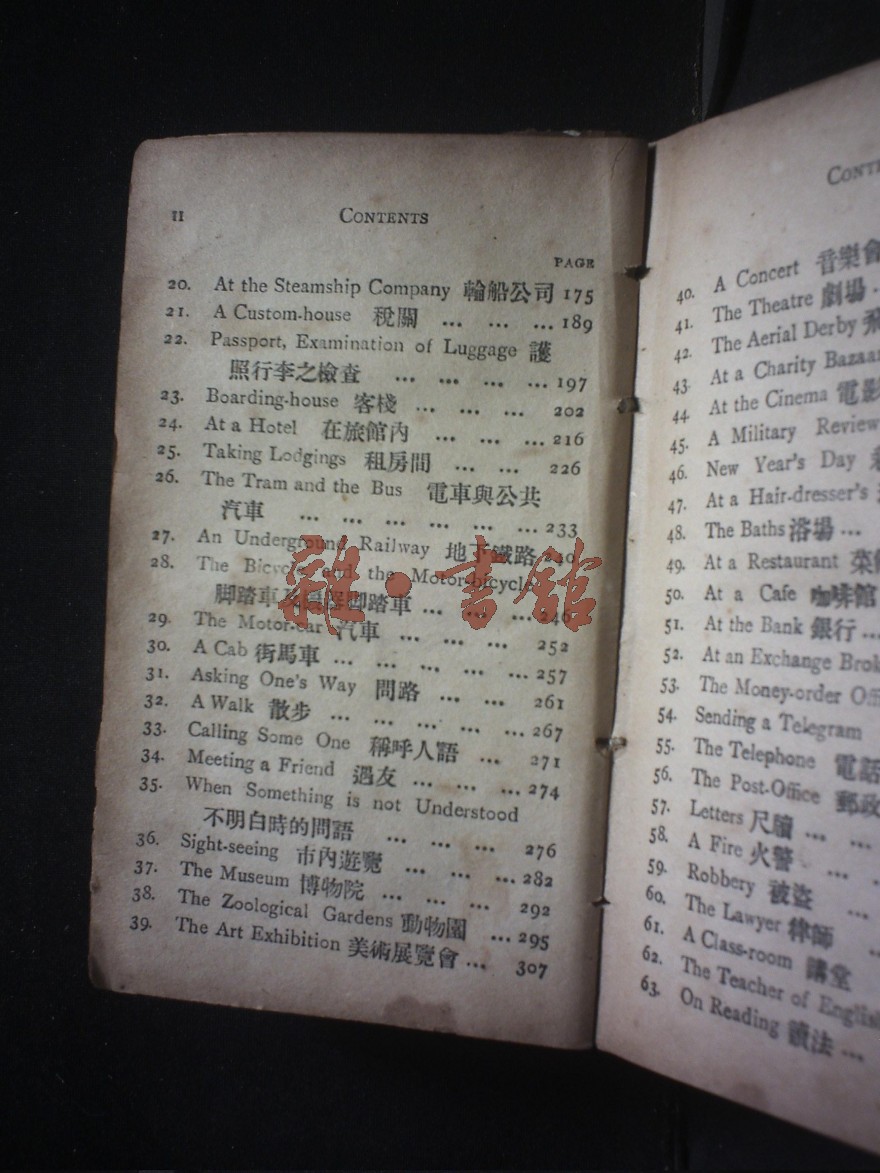 II CONTENTS
PAGE
20. At the Steamship Company 輪船公司 175
21. A Custom-house 稅關 ... ... ... 189
22. Passport, Examination of Luggage 護
照行李之檢查 ... ... ... ... 197
23. Boarding-house 客棧 ... ... ... 202
24. At a Hotel 在旅館內 ... ... ... 216
25. Taking Lodgings 租房間 ... ... 226
26. The Tram and the Bus 電車與公共
汽車 ... ... ... ... ... ... 233
27. An Underground Railway 地下鐵路 240
28. The Bicycle and the Motor-bicycle
脚踏車及 脚踏車 ... ... ... 246
29. The Motor-car 汽車 ... ... ... 252
30. A Cab 街馬車 ... ... ... ... ... 257
31. Asking One's Way 問路 ... ... 261
32. A Walk 散步 ... ... ... ... ... 267
33. Calling Some One 稱呼人語 ... 271
34. Meeting a Friend 遇友 ... ... ... 274
35. When Something is not Understood
不明白時的問語 ... ... ... 276
36. Sight-seeing 市內遊覽 ... ... ... 282
37. The Museum 博物院 ... ... ... 292
38. The Zoological Gardens 動物園 ... 295
39. The Art Exhibition 美術展覽會 ... 307
雜·書館
40. A Concert 音樂會
41. The Theatre 劇場 ...
42. The Aerial Derby 飛
43. At a Charity Bazaar
44. At the Cinema 電影
45. A Military Review
46. New Year's Day
47. At a Hair-dresser's
48. The Baths 浴場 ...
49. At a Restaurant 菜館
50. At a Cafe 咖啡館
51. At the Bank 銀行 ...
52. At an Exchange Brok
53. The Money-order Off
54. Sending a Telegram
55. The Telephone 電話
56. The Post-Office 郵政
57. Letters 尺牘 ...
58. A Fire 火警 ...
59. Robbery 被盜 ...
60. The Lawyer 律師 ...
61. A Class-room 講堂
62. The Teacher of English
63. On Reading 讀法 ...